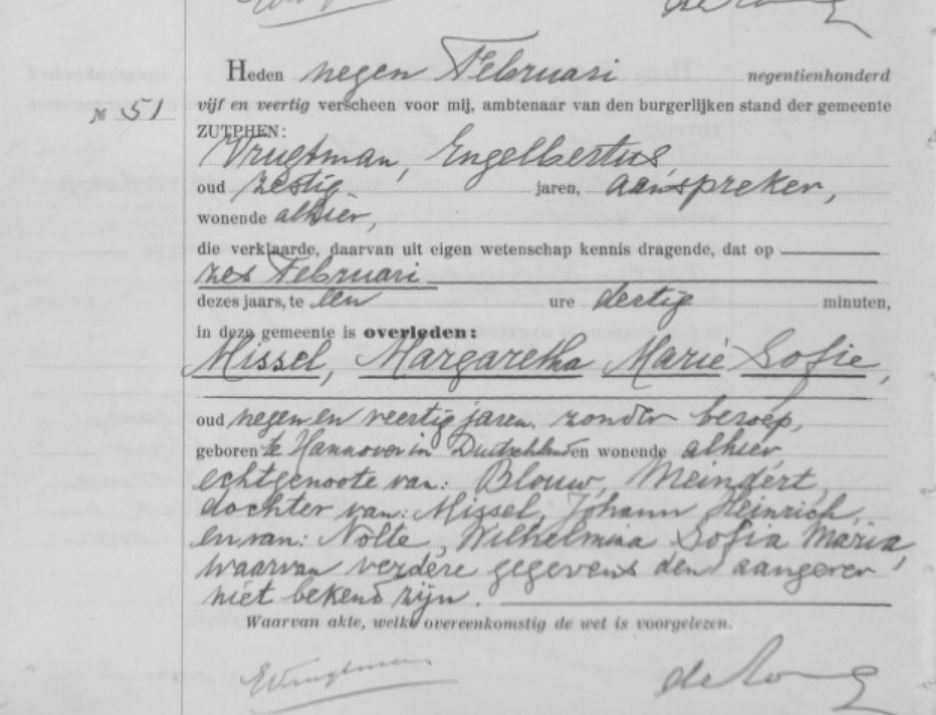 Heden negen Februari negentienhonderd
vijf en veertig verscheen voor mij, ambtenaar van den burgerlijken stand der gemeente
№ 51
ZUTPHEN:
Vrugtman, Engelbertus
oud zestig jaren, aanspreker,
wonende alhier,
die verklaarde, daarvan uit eigen wetenschap kennis dragende, dat op
zes Februari
dezes jaars, te een ure dertig minuten,
in deze gemeente is overleden:
Missel, Margaretha Marie Sofie,
oud negen en veertig jaren, zonder beroep,
geboren te Hannover in Duitschland en wonende alhier
echtgenoote van: Blouw, Meindert
dochter van: Missel, Johann Heinrich,
en van: Nolte, Wilhelmina Sofia Maria,
waarvan verdere gegevens den aangever
niet bekend zijn.
Waarvan akte, welke overeenkomstig de wet is voorgelezen.
EVrugtman de Jong